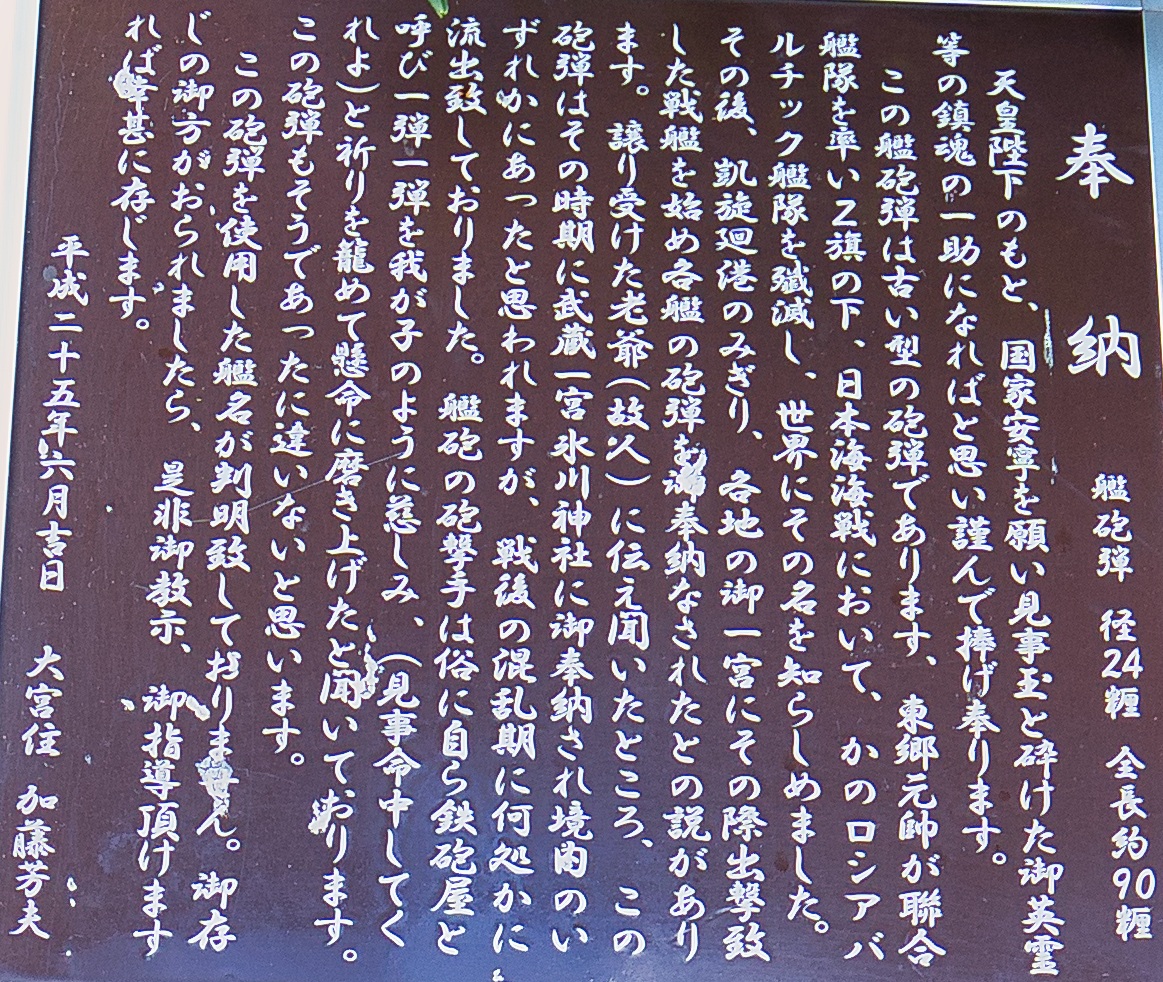 奉納 艦砲弾 径24糎 全長約90糎
天皇陛下のもと、国家安寧を願い見事玉と砕けた御英霊
等の鎮魂の一助になればと思い謹んで捧げ奉ります。
この艦砲弾は古い型の砲弾であります、東郷元帥が聯合
艦隊を率いZ旗の下、日本海海戦において、かのロシアバ
ルチック艦隊を殲滅し、世界にその名を知らしめました。
その後、凱旋廻港のみぎり、各地の御一宮にその際出撃致
した戦艦を始め各艦の砲弾を 奉納なされたとの説があり
ます。譲り受けた老爺(故人)に伝え聞いたところ、この
砲弾はその時期に武蔵一宮氷川神社に御奉納され境内のい
ずれかにあったと思われますが、戦後の混乱期に何処かに
流出致しておりました。艦砲の砲撃手は俗に自ら鉄砲屋と
呼び一弾一弾を我が子のように慈しみ、(見事命中してく
れよ)と祈りを籠めて懸命に磨き上げたと聞いております。
この砲弾もそうであったに違いないと思います。
この砲弾を使用した艦名が判明致しておりません。御存
じの御方がおられましたら、是非御教示、御指導頂けます
れば幸甚に存じます。
平成二十五年六月吉日 大宮住 加藤芳夫